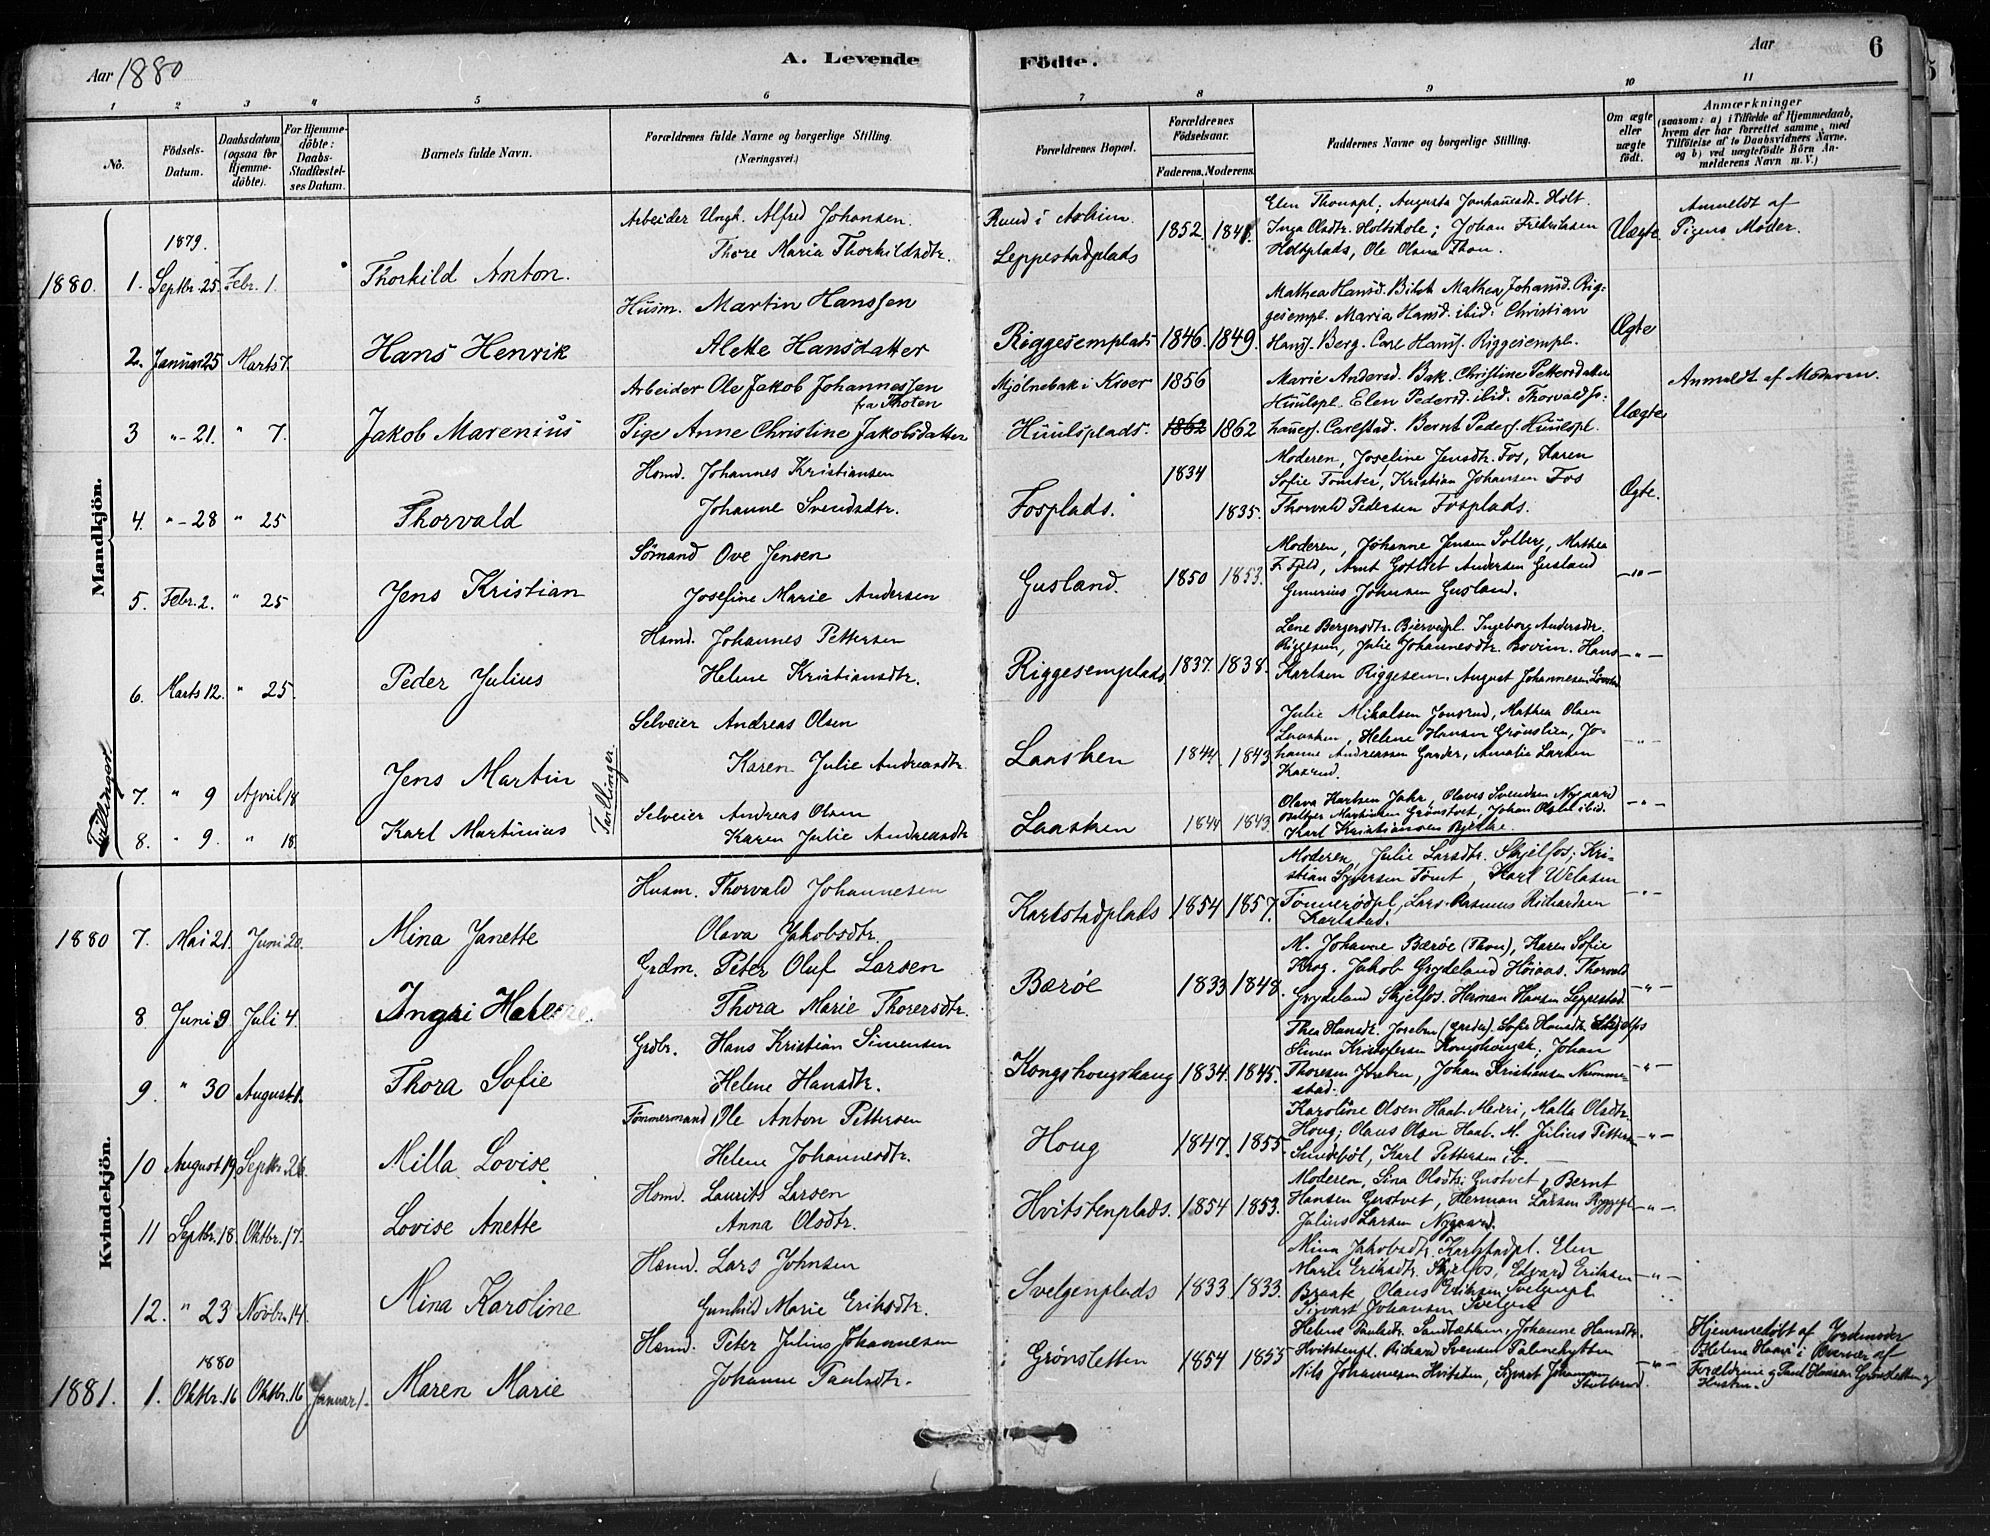 Aar 1880
A. Levende
Födte.
Aar
6
1 2 3 4 5 6 7 8 9 10 11
No.
Födsels-Datum.
Daabsdatum (ogsaa for Hjemme-döbte).
For Hjemme-döbte: Daabs-Stadfæstel-ses Datum.
Barnets fulde Navn.
Forældrenes fulde Navne og borgerlige Stilling.
(Næringsvei.)
Forældrenes Bopæl.
Forældrenes Födselsaar.
Faderens. Moderens.
Faddernes Navne og borgerlige Stilling.
Om ægte eller uægte födt.
Anmærkninger
(saasom: a) i Tilfælde af Hjemmedaab,
hvem der har forrettet samme, med
Tilföielse af to Daabsvidners Navne.
og b) ved uægtefödte Börn An-
melderens Navn m. V.)
Mandkjön.
1880. 1. 1879. Septbr. 25. Febr. 1. Thorkild Anton.
Arbeider Ungk. Alfred Johansen.
Thore Maria Thorkildsdtr.
Ruud i Askim.
Leppestadplads
1852. 1848.
Elen Thonspl; Augusta Johannesdt. Holt.
Inga Olsdtr. Holtskole; Johan Fredriksen
Holtplads, Ole Olsen Thon.
Uægte.
Anmeldt af
Pigens Moder.
2. Januar 25 Marts 7. Hans Henrik
Husm. Martin Hanssen
Alette Hansdatter
Riggesemplads 1846. 1849.
Mathea Hansd. Mathea Johansd. Rig-
gesempl. Maria Hansd. ibid: Christian
Hansf. Berg. Carl Hansf. Riggesempl.
Ægte
3 "- 21. " 7. Jakob Marenius
Arbeider Ole Jakob Johannessen
fra Thoten
Pige Anne Christine Jakobsdatter
Mjølnebak i Kroer 1856
Huulsplads. 1862 1862
Marie Andersd. Bak. Christine Pettersdatter
Huulspl. Elen Pedersd. ibid. Thorvald Jo-
hannesf. Carlstad. Bernt Pedersf. Huulspl.
Uægte
Anmeldt af Moderen.
4. "- 28 " 25 Thorvald
Hsmd. Johannes Kristiansen
Johanne Svendsdtr.
Fosplads. 1834 1835.
Moderen, Joseline Jensdtr. Fos, Karen
Sofie Tomter, Kristian Johansen Fos
Thorvald Pedersen Fosplads.
Ægte.
5. Febr. 2. " 25 Jens Kristian
Sömand Ove Jensen
Josefine Marie Andersen
Gusland. 1850 1853.
Moderen, Johanne Jensen Solberg, Mathea
Arnt Gotliet Andersen Gusland
Gunerius Johnsen Gusland.
-"-
6. Marts 12. " 25. Peder Julius
Hsmd. Johannes Pettersen
Helene Kristiansdtr.
Riggesemplads 1837. 1838.
Lene Bergersdtr. Ingeborg Andersdtr.
Riggesem, Julie Johannesdtr. Bovim. Hans
Karlsen Riggesem. August Johannesen
-"-
Tvillinger
7. " 9 April 18 Jens Martin
Tvillinger
Selveier Andreas Olsen
Karen Julie Andreasdtr.
Laasken 1844. 1843
Julie Mikalsen Jonsrud, Mathea Olsen
Laasken, Helene Hansen Grönslien, Jo-
hanne Andreassen Garder, Amalie Larsen
Kaasrud.
-"-
8. " 9. " 18. Karl Martinius
Selveier Andreas Olsen
Karen Julie Andreasdtr
Laasken 1844 1843
Olava Karlsen Jahr, Olaves Svendsen Nygaard
Martinsen Grönstvet, Johan Olsen ibid.
Karl Kristiansen Bjerke.
-"-
Kvindekjön.
1880 7. Mai 21. Juni 20. Mina Janette
Husm. Thorvald Johannesen
Olava Jakobsdtr.
Karlstadplads 1854 1857.
Moderen, Julie Larsdtr. Skjelfos; Kri-
stian Syversen Tomt, Karl Welasen
Tömmerödpl, Lars Rasmus Richardsen
Karlstad.
-"-
8 Juni 9 Juli 4. Ingri Helene.
Grdm. Peter Oluf Larsen
Thora Marie Thorersdtr.
Bæröe 1833 1848.
M. Johanne Bæröe (Thon), Karen Sofie
Krog. Jakob Grydeland Höiaas. Thorvald
Grydeland Skjelfos. Herman Hansen Leppestad
-"-
9. " 30 August 1. Thora Sofie
Grdbr. Hans Kristian Simensen
Helene Hansdtr.
Kongshougshaug 1834. 1845.
Thea Hansdtr. Josebro (Garder). Sofie Hansdtr. Skjelfos
Simen Kristofersen Kongshougsk, Johan
Thoresen Josbro, Johan Kristiansen Numme-
stad.
-"-
10 August 19. Septbr. 26. Milla Lovise
Tömmermand Ole Anton Pettersen
Helene Johannesdtr.
Houg 1847. 1855
Karoline Olsen Haat. Meieri, Malla Olsdtr.
Houg; Olaus Olsen Haat. M. Julius Petters
Sundeböl, Karl Pettersen ib.
-"-
11 Septbr. 18. Oktbr. 17. Lovise Anette
Hsmd. Laurits Larsen
Anna Olsdtr.
Hvitstenplads. 1854 1853.
Moderen, Sina Olsdtr. Grostvet, Bernt
Hansen Grostvet, Herman Larsen
Julius Larsen Nygaard.
-"-
12. " 23 Novbr. 14. Mina Karoline
Hsmd. Lars Johnsen
Gunhild Marie Eriksdtr.
Svelgenplads 1833 1833.
Mina Jakobsdtr. Karlstadpl. Elen
Marie Eriksdtr. Skjelfos, Edvard Eriksen
Braate, Olaus Eriksen Svelgenpl
Sigvart Johansen Svelgen
-"-
1881. 1. 1880 Oktbr. 16 Oktbr. 16 Januar 1. Maren Marie
Hsmd. Peter Julius Johannesen
Johanne Paulsdtr.
Grönsletten 1854 1855
Helene Paulsdtr. Sandbækken, Johanne Hansdtr.
Hvitstenpl. Richard Svensen Palmehytten
Nils Johannesen Hvitsten, Sigvart Johannes
Stubberud.
-"-
Hjemmedöbt af Jordemoder
Helene Haavi i Overvær af
Forældrene og Paul Hansen Grönsletten og
Hustru.